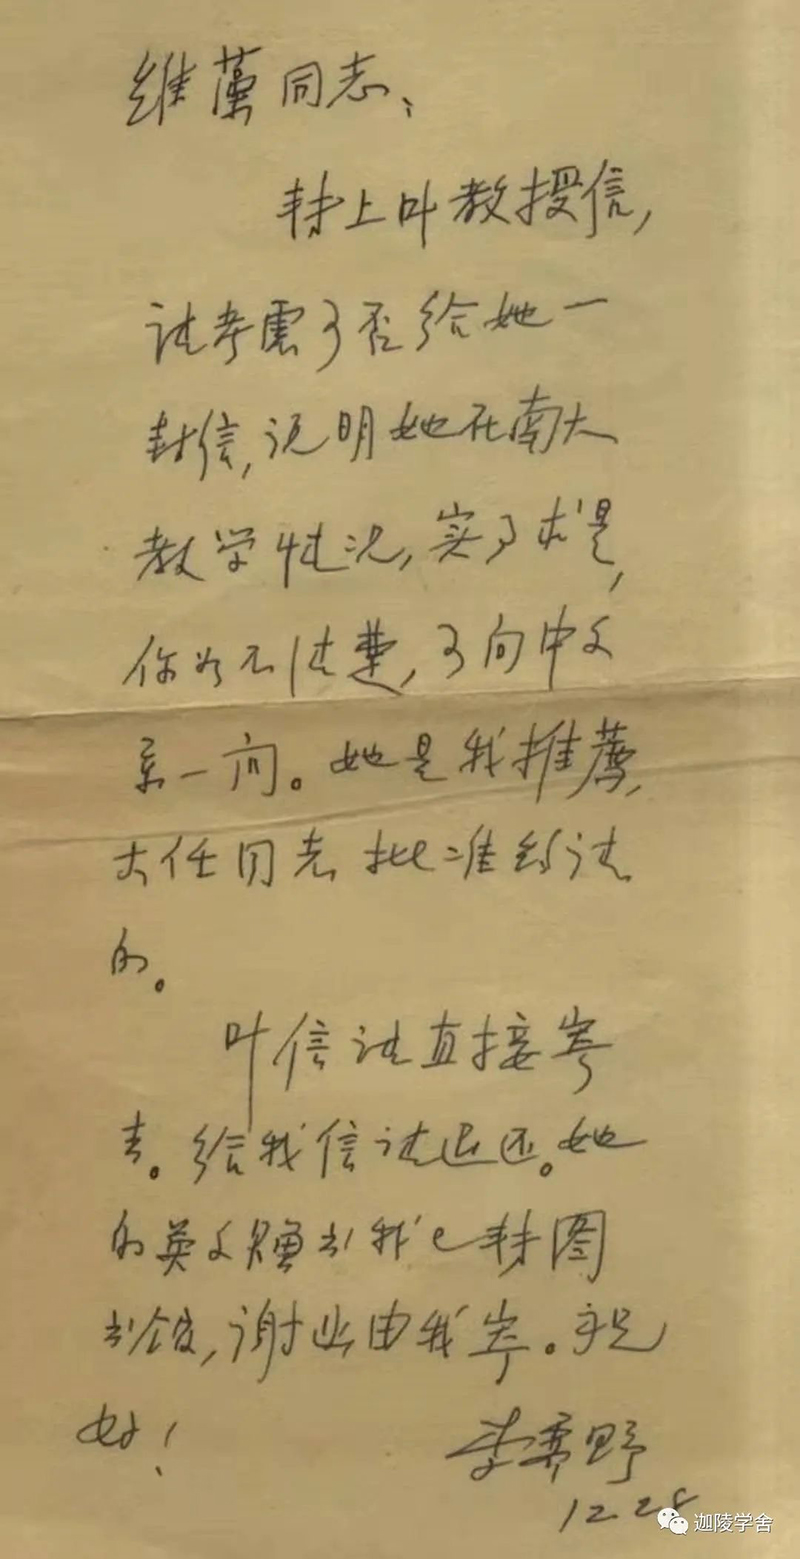 维藻同志：
转上叶教授信，
请考虑可否给她一
封信，说明她在南大
教学情况，实事求是，
你如不清楚，可向中文
系一问。她是我推荐，
大任同志批准约请
的。
叶信请直接寄
去。给我信请退还。她
的英文赠书我已转图
书馆，谢函由我寄。祝
好！
李霁野
12.28
迦陵学舍